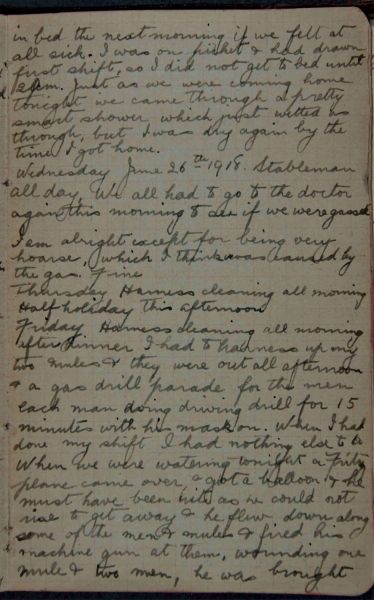 in bed the next morning if we felt at
all sick. I was on picket & had drawn
first shift, so I did not get to bed until
Just as we were coming home
tonight we came through a pretty
smart shower which just wetted us
through, but I was dry again by the
time I got home.
Wednesday June 26th 1918. Stableman
all day. We all had to go to the doctor
again this morning to see if we were gassed
I am alright except for being very
hoarse, which I think was caused by
the gas. Fine
Thursday Harness cleaning all morning
Half holiday this afternoon
Friday. Harness cleaning all morning
after dinner I had to harness up my
two mules & they were out all afternoon
& a gas drill parade for the men
each man doing driving drill for 15
minutes with his mask on. When I had
done my shift I had nothing else to do
When we were watering tonight a Fritz
plane came over, & got a balloon & he
must have been hit as he could not
rise to get away & he flew down along
some of the men & mules & fired his
machine gun at them, wounding one
mule & two men, he was brought